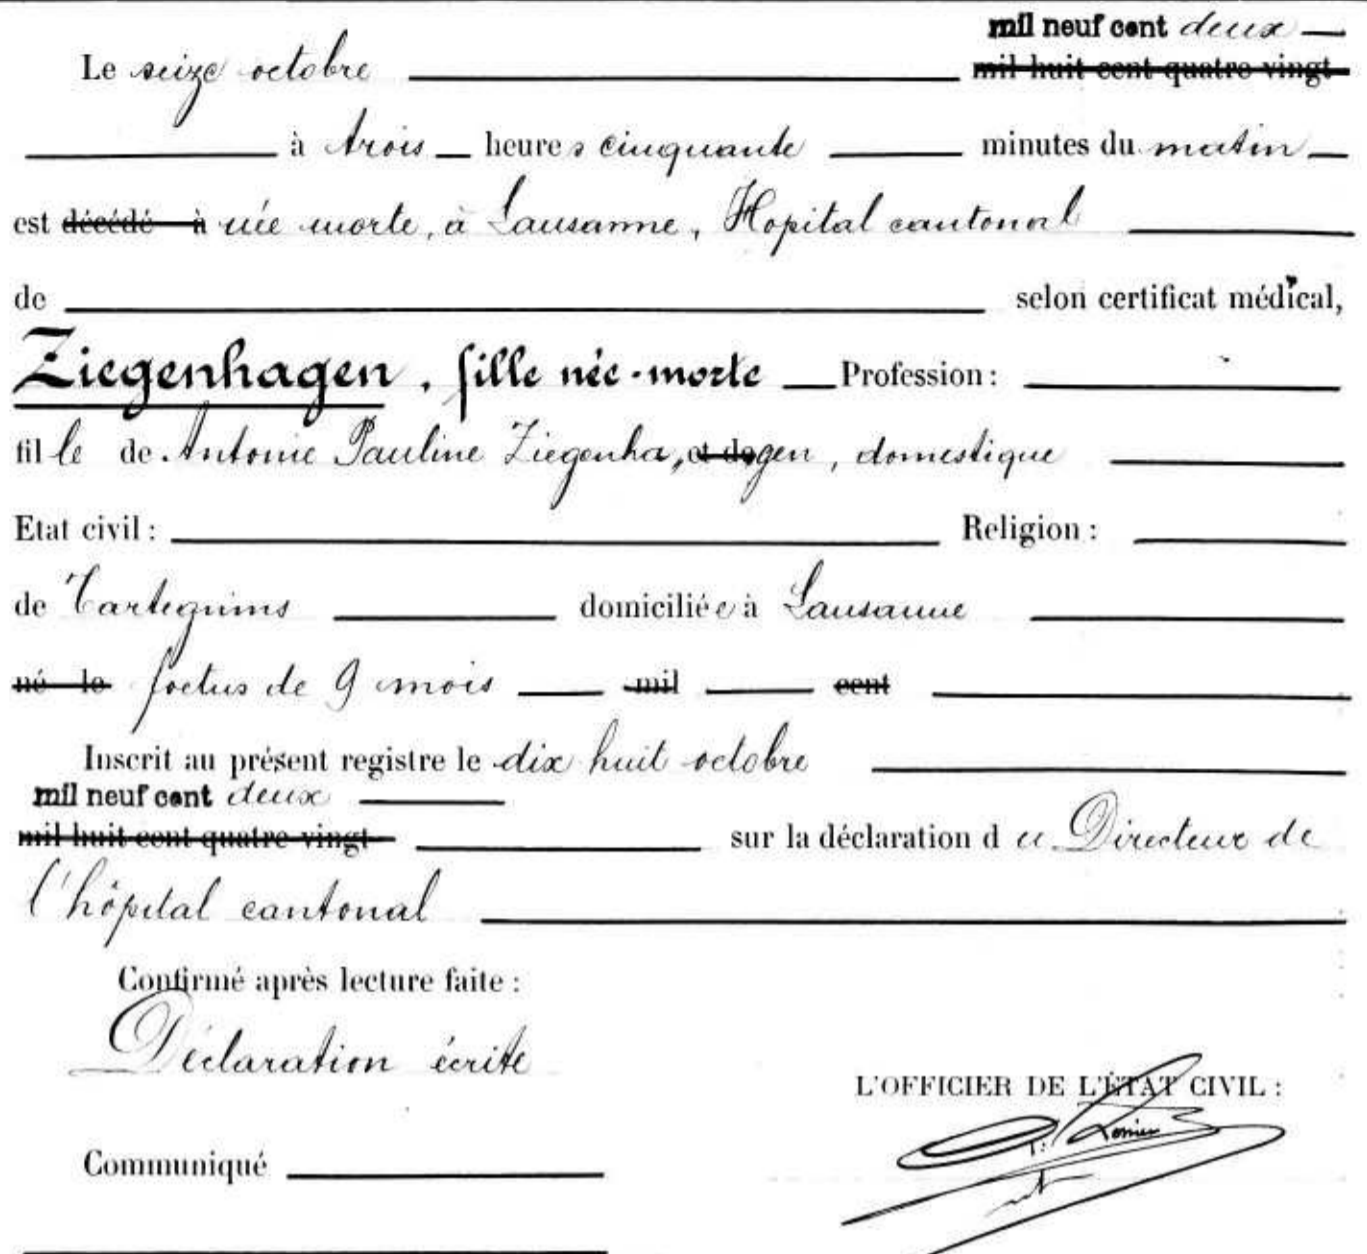 mil neuf cent deux
Le seize octobre mil huit cent quatre vingt
à trois heures cinquante minutes du matin
est décédé à née morte, à Lausanne, Hopital cantonal
de selon certificat médical,
Ziegenhagen, fille née-morte Profession :
fille de Antonie Pauline Ziegenha, et de gen, domestique
Etat civil : Religion :
de Tartegnins domiciliée à Lausanne
né le foetus de 9 mois mil cent
Inscrit au présent registre le dix huit octobre
mil neuf cent deux
mil huit cent quatre vingt sur la déclaration du Directeur de
l'hôpital cantonal
Confirmé après lecture faite :
Déclaration écrite
L'OFFICIER DE L'ÉTAT CIVIL :
Communiqué